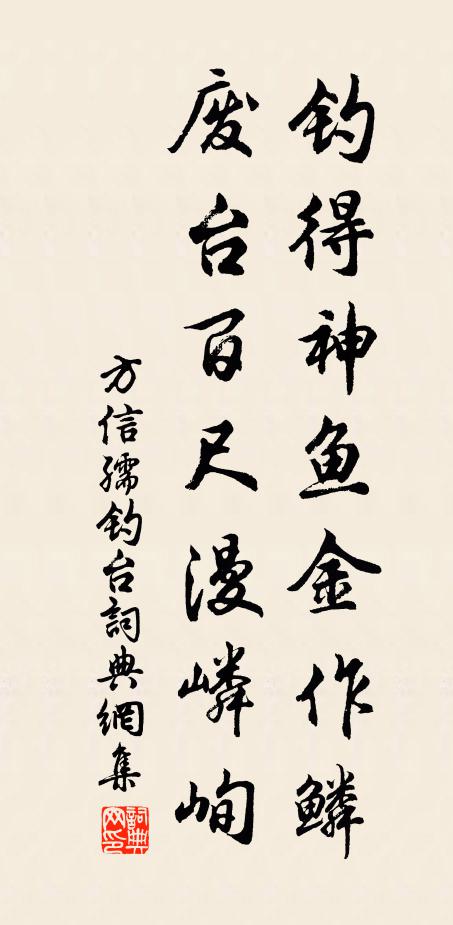 钓得神鱼金作鳞
废台百尺漫嶙峋
方信孺钓台詞典網集
詞典网印